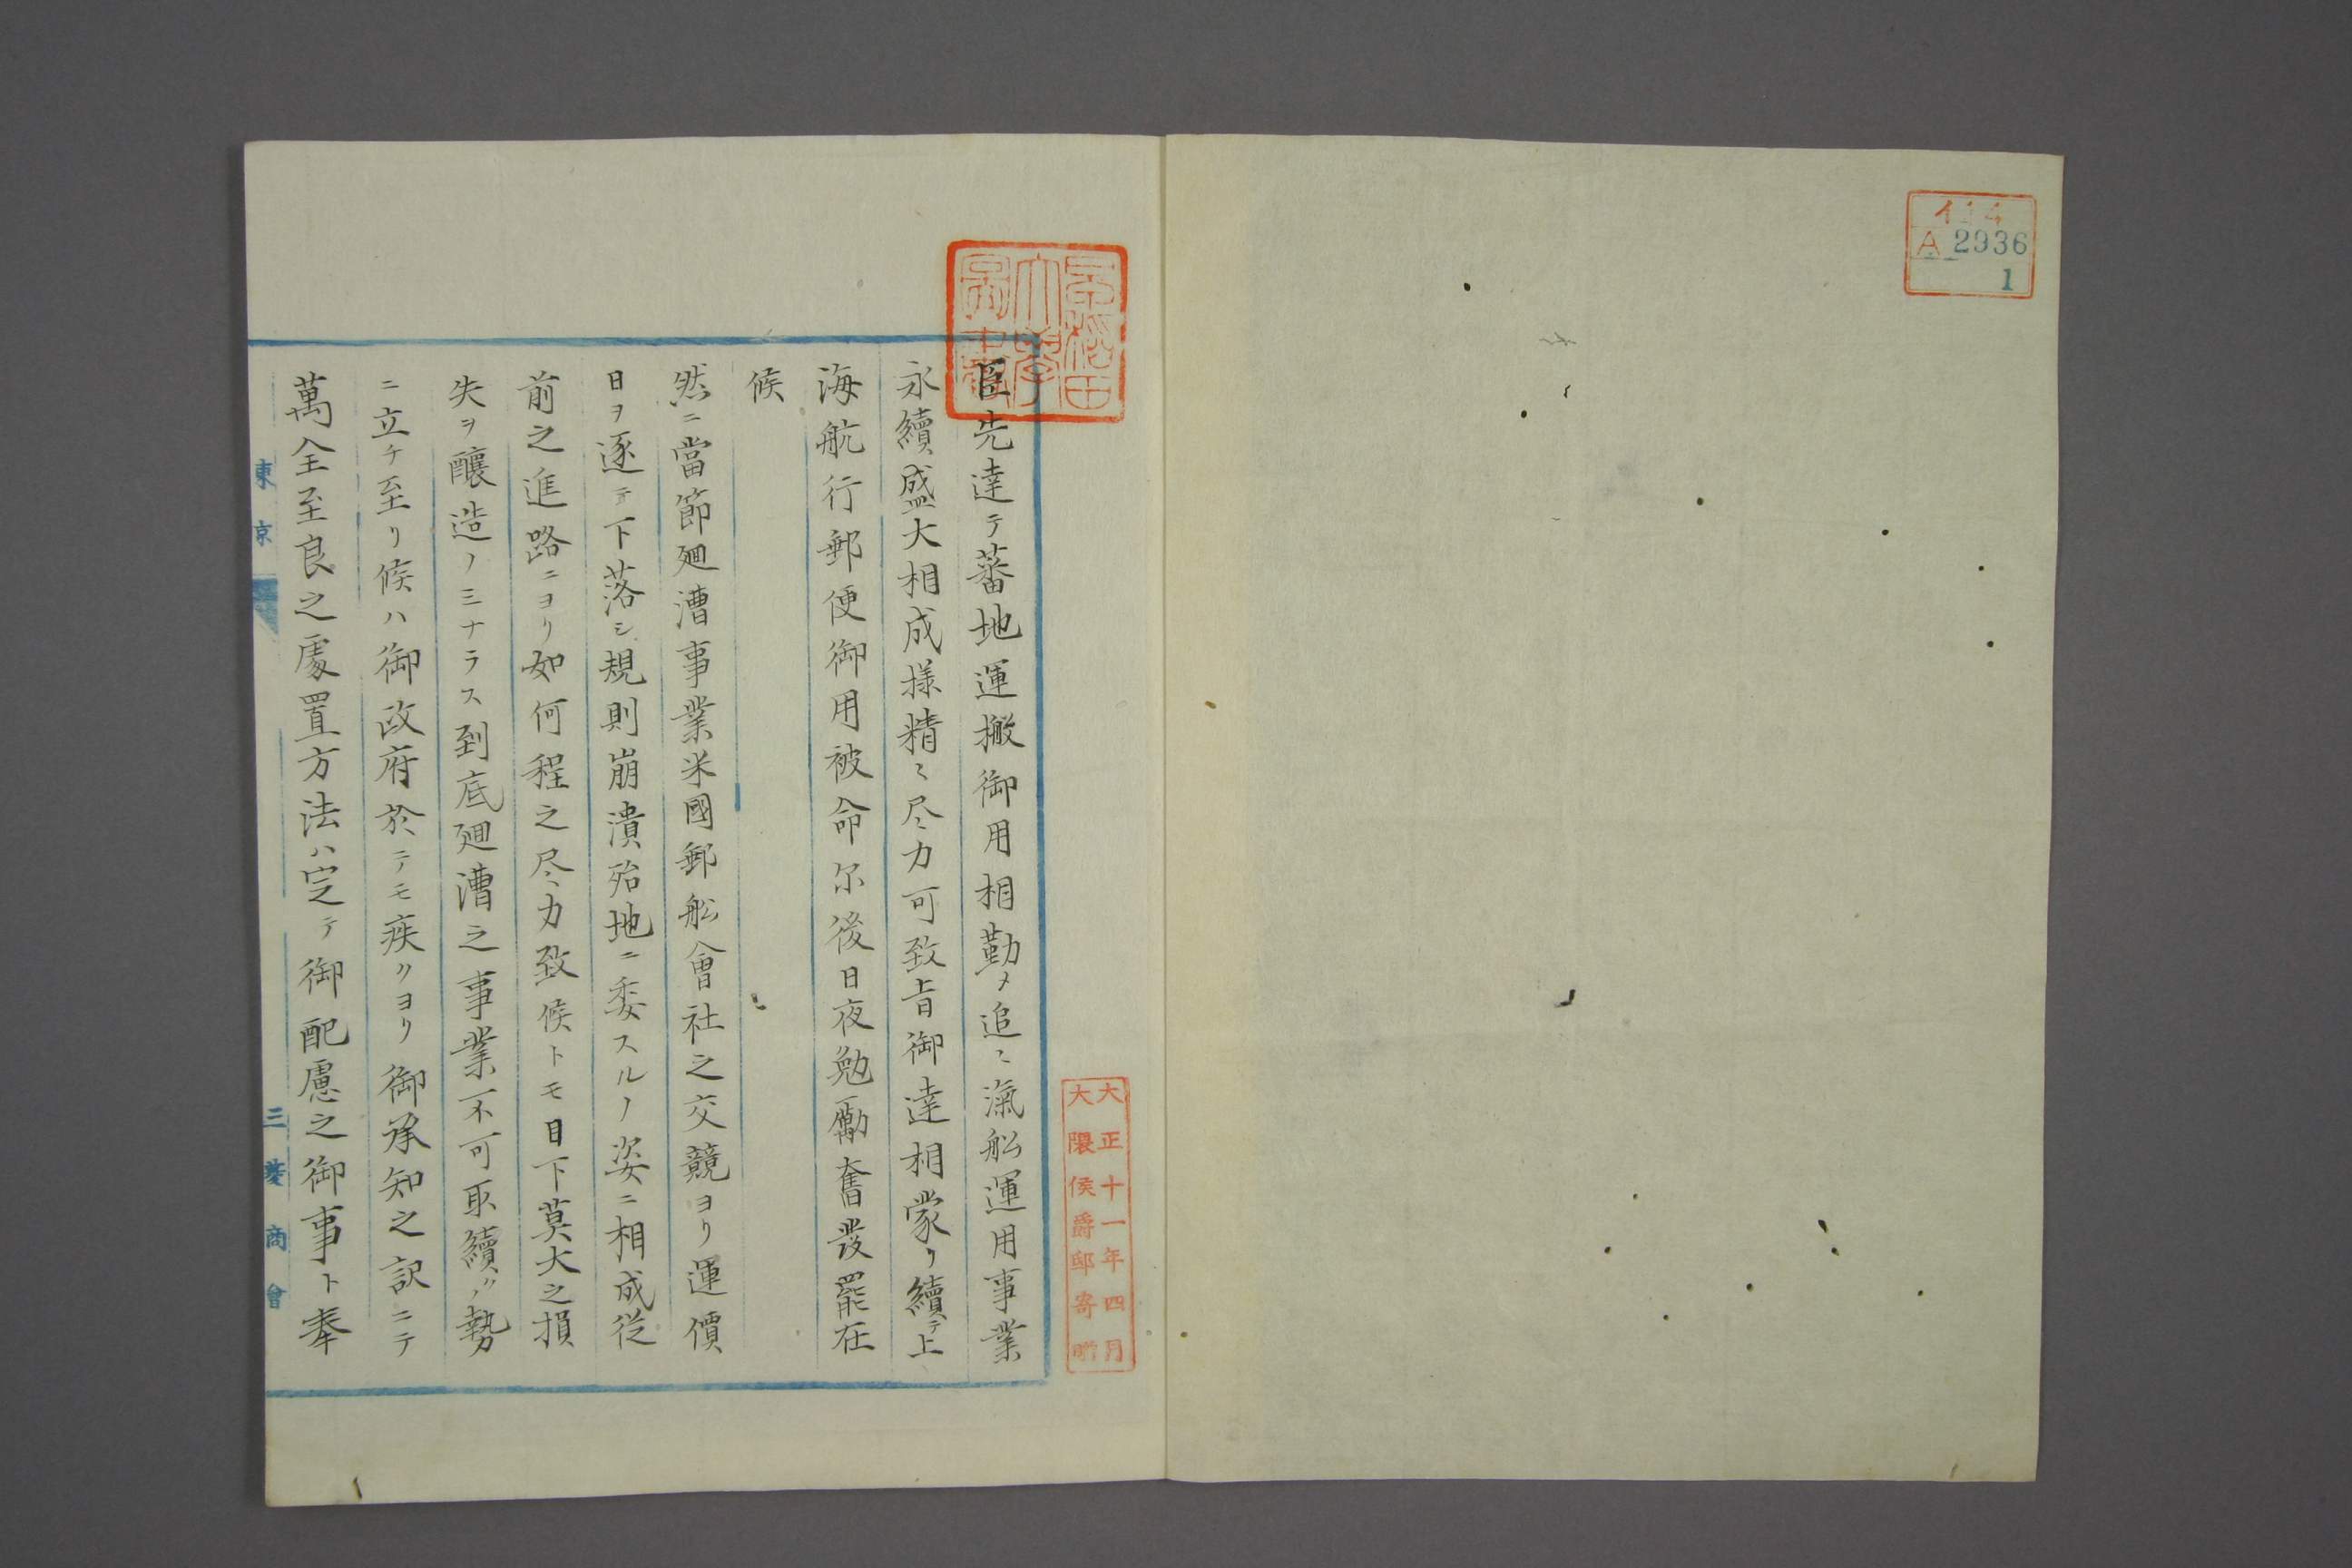 イ14
A 2936
1
早稲田
大學
圖書
大正十一年四月
大隈侯爵邸寄贈
臣先達テ蕃地運搬御用相勤メ追〻滊舩運用事業
永續盛大相成様精〻尽力可致旨御達相蒙リ續テ上
海航行郵便御用被命尓後日夜勉勵奮發罷在
候
然ニ當節廻漕事業米國郵舩會社之交競ヨリ運價
日ヲ逐テ下落シ規則崩潰殆地ニ委スルノ姿ニ相成従
前之進路ニヨリ如何程之尽力致候トモ目下莫大之損
失ヲ釀造ノミナラス到底廻漕之事業不可取續ノ勢
ニ立チ至リ候ハ御政府於テモ疾クヨリ御承知之訳ニテ
萬全至良之處置方法ハ定テ御配慮之御事ト奉
東京
三菱商會